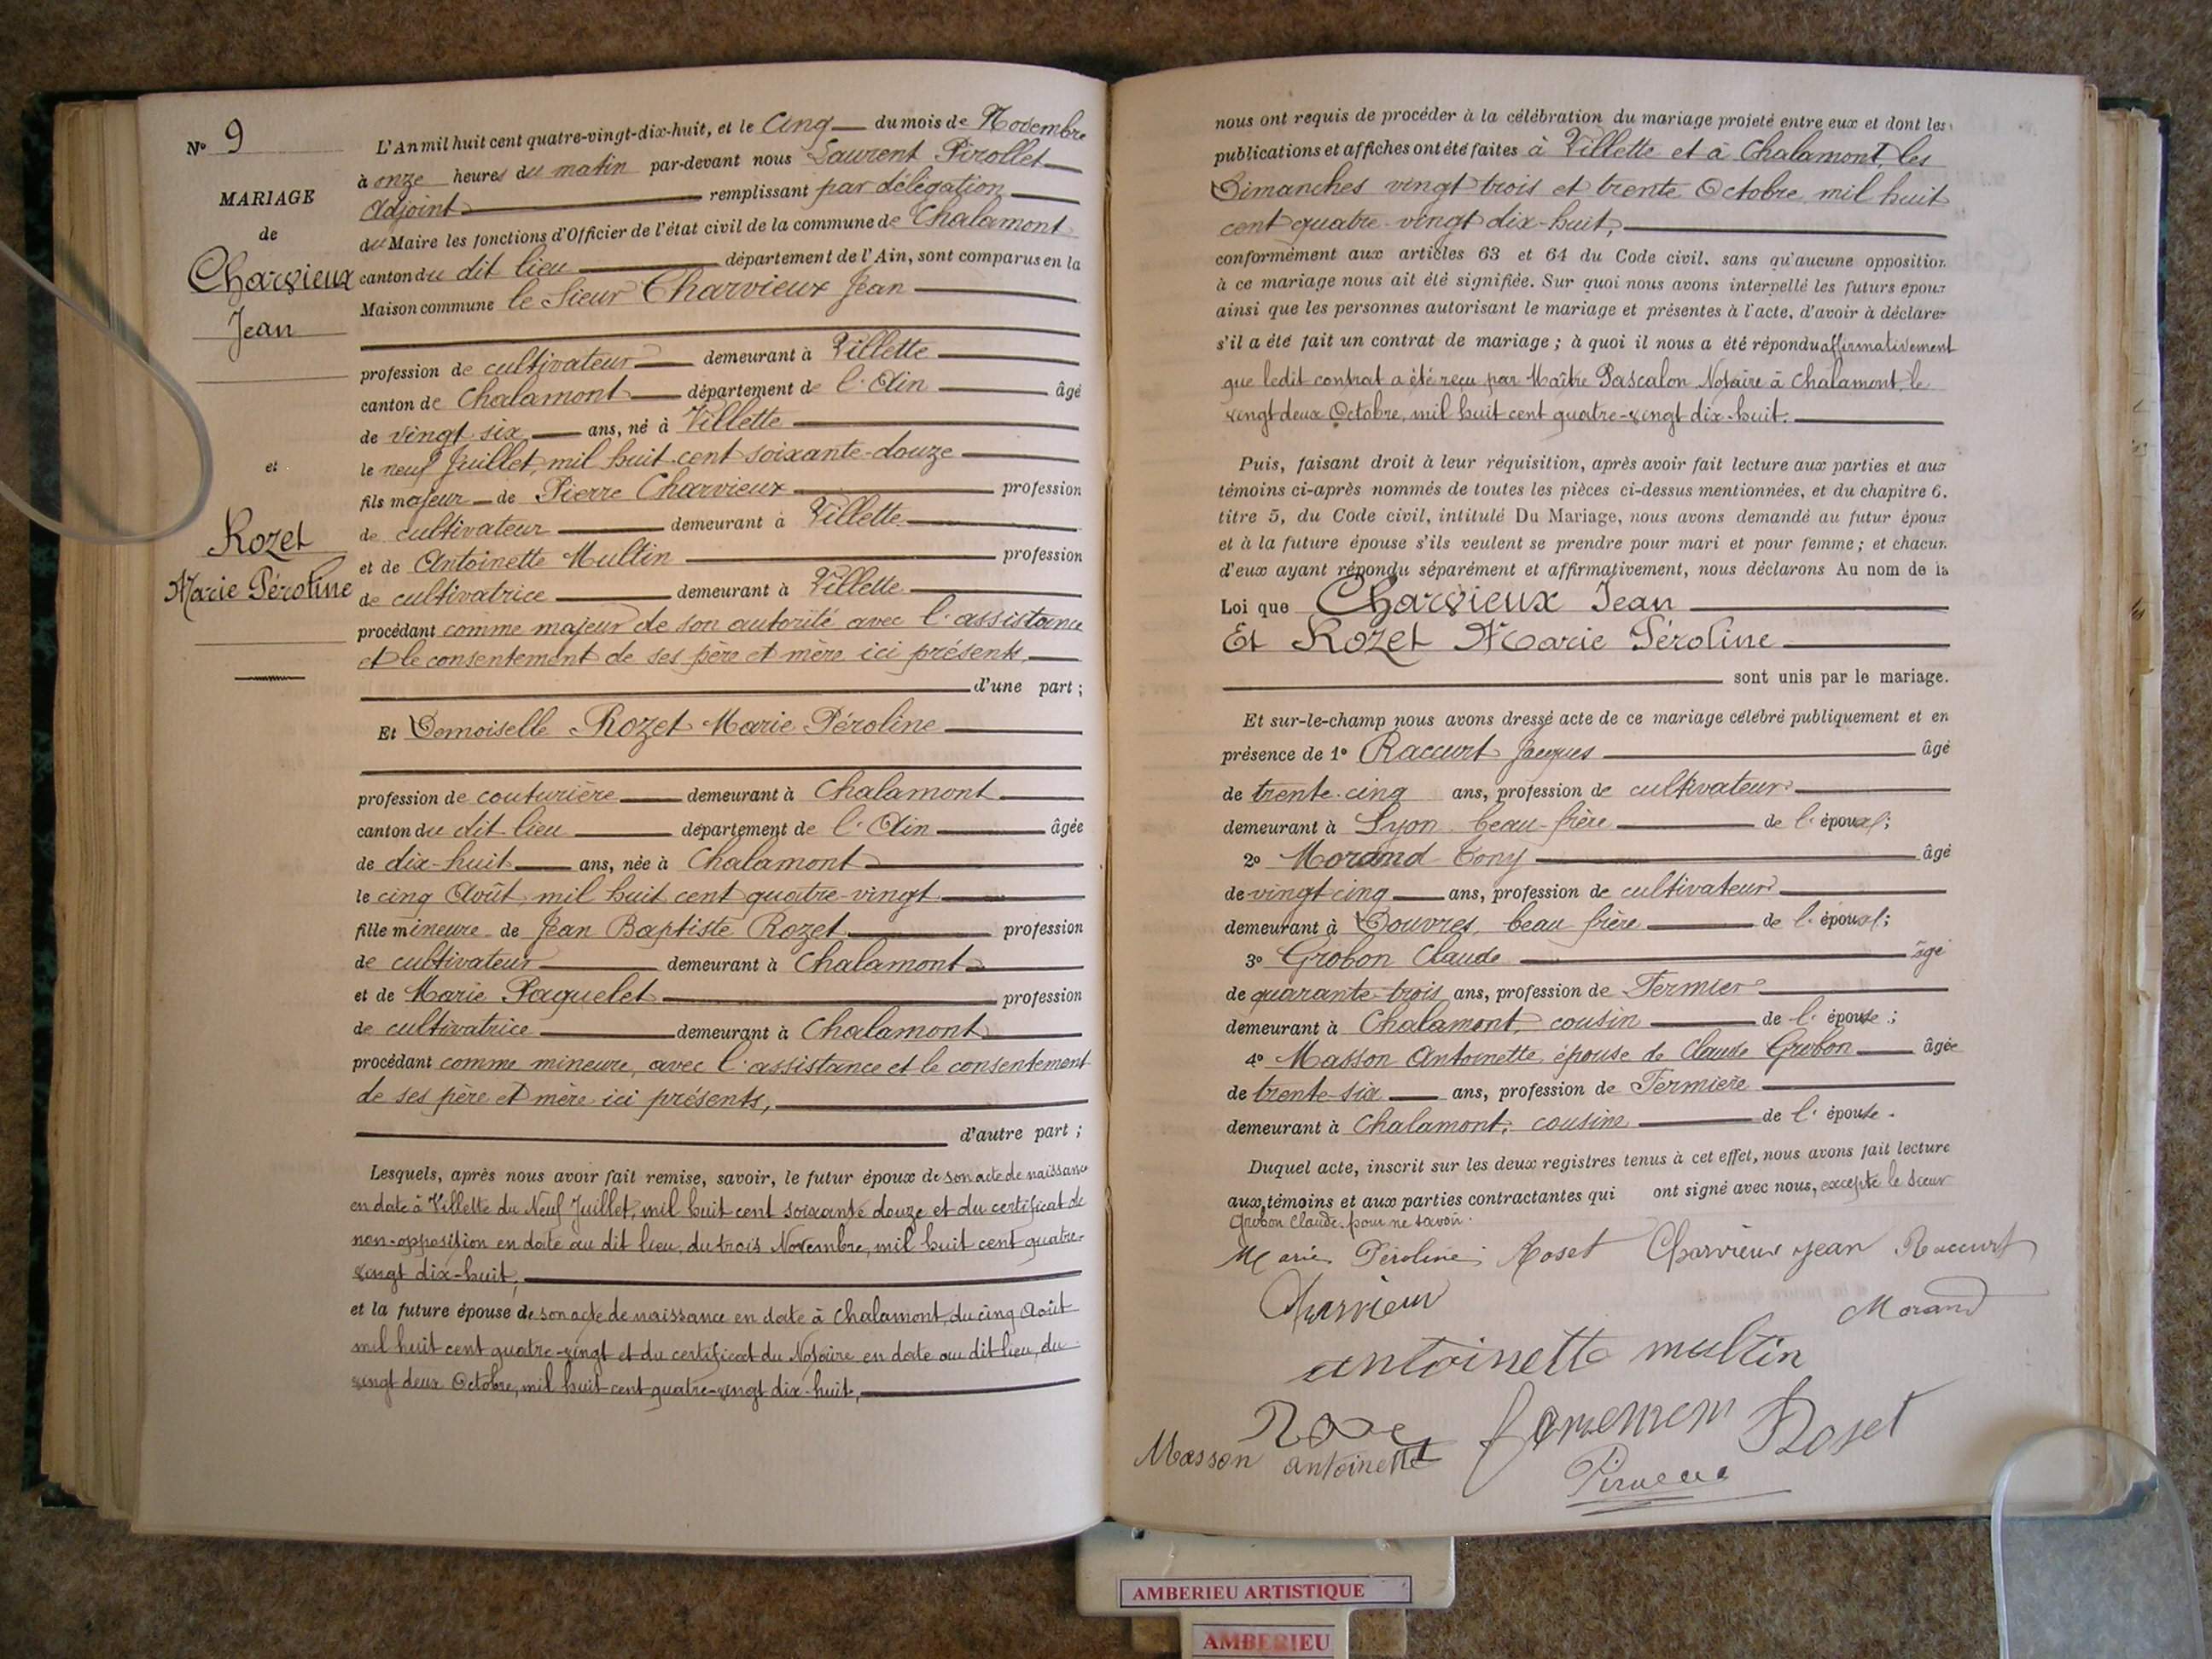 N° 9
MARIAGE
de
Charvieux
Jean
et
Rozet
Marie Péroline
L'An mil huit cent quatre-vingt-dix-huit, et le Cinq du mois de Novembre
à onze heures du matin par-devant nous Laurent Pirollet
Adjoint remplissant par délégation
du Maire les fonctions d'Officier de l'état civil de la commune de Chalamont
canton du dit lieu département de l'Ain, sont comparus en la
Maison commune le Sieur Charvieux Jean
profession de cultivateur demeurant à Villette
canton de Chalamont département de l'Ain âgé
de vingt six ans, né à Villette
le neuf Juillet, mil huit cent soixante-douze
fils majeur de Pierre Charvieux profession
de cultivateur demeurant à Villette
et de Antoinette Multin profession
de cultivatrice demeurant à Villette
procédant comme majeur de son autorité avec l'assistance
et le consentement de ses père et mère ici présents,
d'une part ;
Et Demoiselle Rozet Marie Péroline
profession de couturière demeurant à Chalamont
canton du dit lieu département de l'Ain âgée
de dix-huit ans, née à Chalamont
le cinq Août, mil huit cent quatre-vingt
fille mineure de Jean Baptiste Rozet profession
de cultivateur demeurant à Chalamont
et de Marie Paquelet profession
de cultivatrice demeurant à Chalamont
procédant comme mineure, avec l'assistance et le consentement
de ses père et mère ici présents,
d'autre part ;
Lesquels, après nous avoir fait remise, savoir, le futur époux de son acte de naissance
en date à Villette du Neuf Juillet, mil huit cent soixante douze et du certificat de
non-opposition en date au dit lieu, du trois Novembre, mil huit cent quatre-
vingt dix-huit,
et la future épouse de son acte de naissance en date à Chalamont, du cinq Août
mil huit cent quatre-vingt et du certificat du Notaire en date au dit lieu, du
vingt deux Octobre, mil huit cent quatre-vingt dix-huit,
nous ont requis de procéder à la célébration du mariage projeté entre eux et dont les
publications et affiches ont été faites à Villette et à Chalamont, les
Dimanches vingt trois et trente Octobre mil huit
cent quatre-vingt dix-huit,
conformément aux articles 63 et 64 du Code civil, sans qu'aucune opposition
à ce mariage nous ait été signifiée. Sur quoi nous avons interpellé les futurs époux
ainsi que les personnes autorisant le mariage et présentes à l'acte, d'avoir à déclarer
s'il a été fait un contrat de mariage ; à quoi il nous a été répondu affirmativement
que ledit contrat a été reçu par Maître Pascalon Notaire à Chalamont, le
vingt deux Octobre, mil huit cent quatre-vingt dix-huit.
Puis, faisant droit à leur réquisition, après avoir fait lecture aux parties et aux
témoins ci-après nommés de toutes les pièces ci-dessus mentionnées, et du chapitre 6.
titre 5, du Code civil, intitulé Du Mariage, nous avons demandé au futur époux
et à la future épouse s'ils veulent se prendre pour mari et pour femme ; et chacun
d'eux ayant répondu séparément et affirmativement, nous déclarons Au nom de la
Loi que Charvieux Jean
Et Rozet Marie Péroline
sont unis par le mariage.
Et sur-le-champ nous avons dressé acte de ce mariage célébré publiquement et en
présence de 1° Raccurt Jacques âgé
de trente-cinq ans, profession de cultivateur
demeurant à Lyon beau-frère de l'époux ;
2° Morand Tony âgé
de vingt cinq ans, profession de cultivateur
demeurant à Douvres, beau frère de l'époux ;
3° Grobon Claude âgé
de quarante-trois ans, profession de Fermier
demeurant à Chalamont, cousin de l'épouse ;
4° Masson Antoinette épouse de Claude Grobon âgée
de trente-six ans, profession de Fermière
demeurant à Chalamont, cousine de l'épouse.
Duquel acte, inscrit sur les deux registres tenus à cet effet, nous avons fait lecture
aux témoins et aux parties contractantes qui ont signé avec nous, excepté le Sieur
Grobon Claude. pour ne savoir.
Marie Péroline Roset Charvieux Jean Raccurt
Charvieux
Morand
antoinette multin
Roset
Masson antoinette
AMBERIEU ARTISTIQUE
AMBERIEU